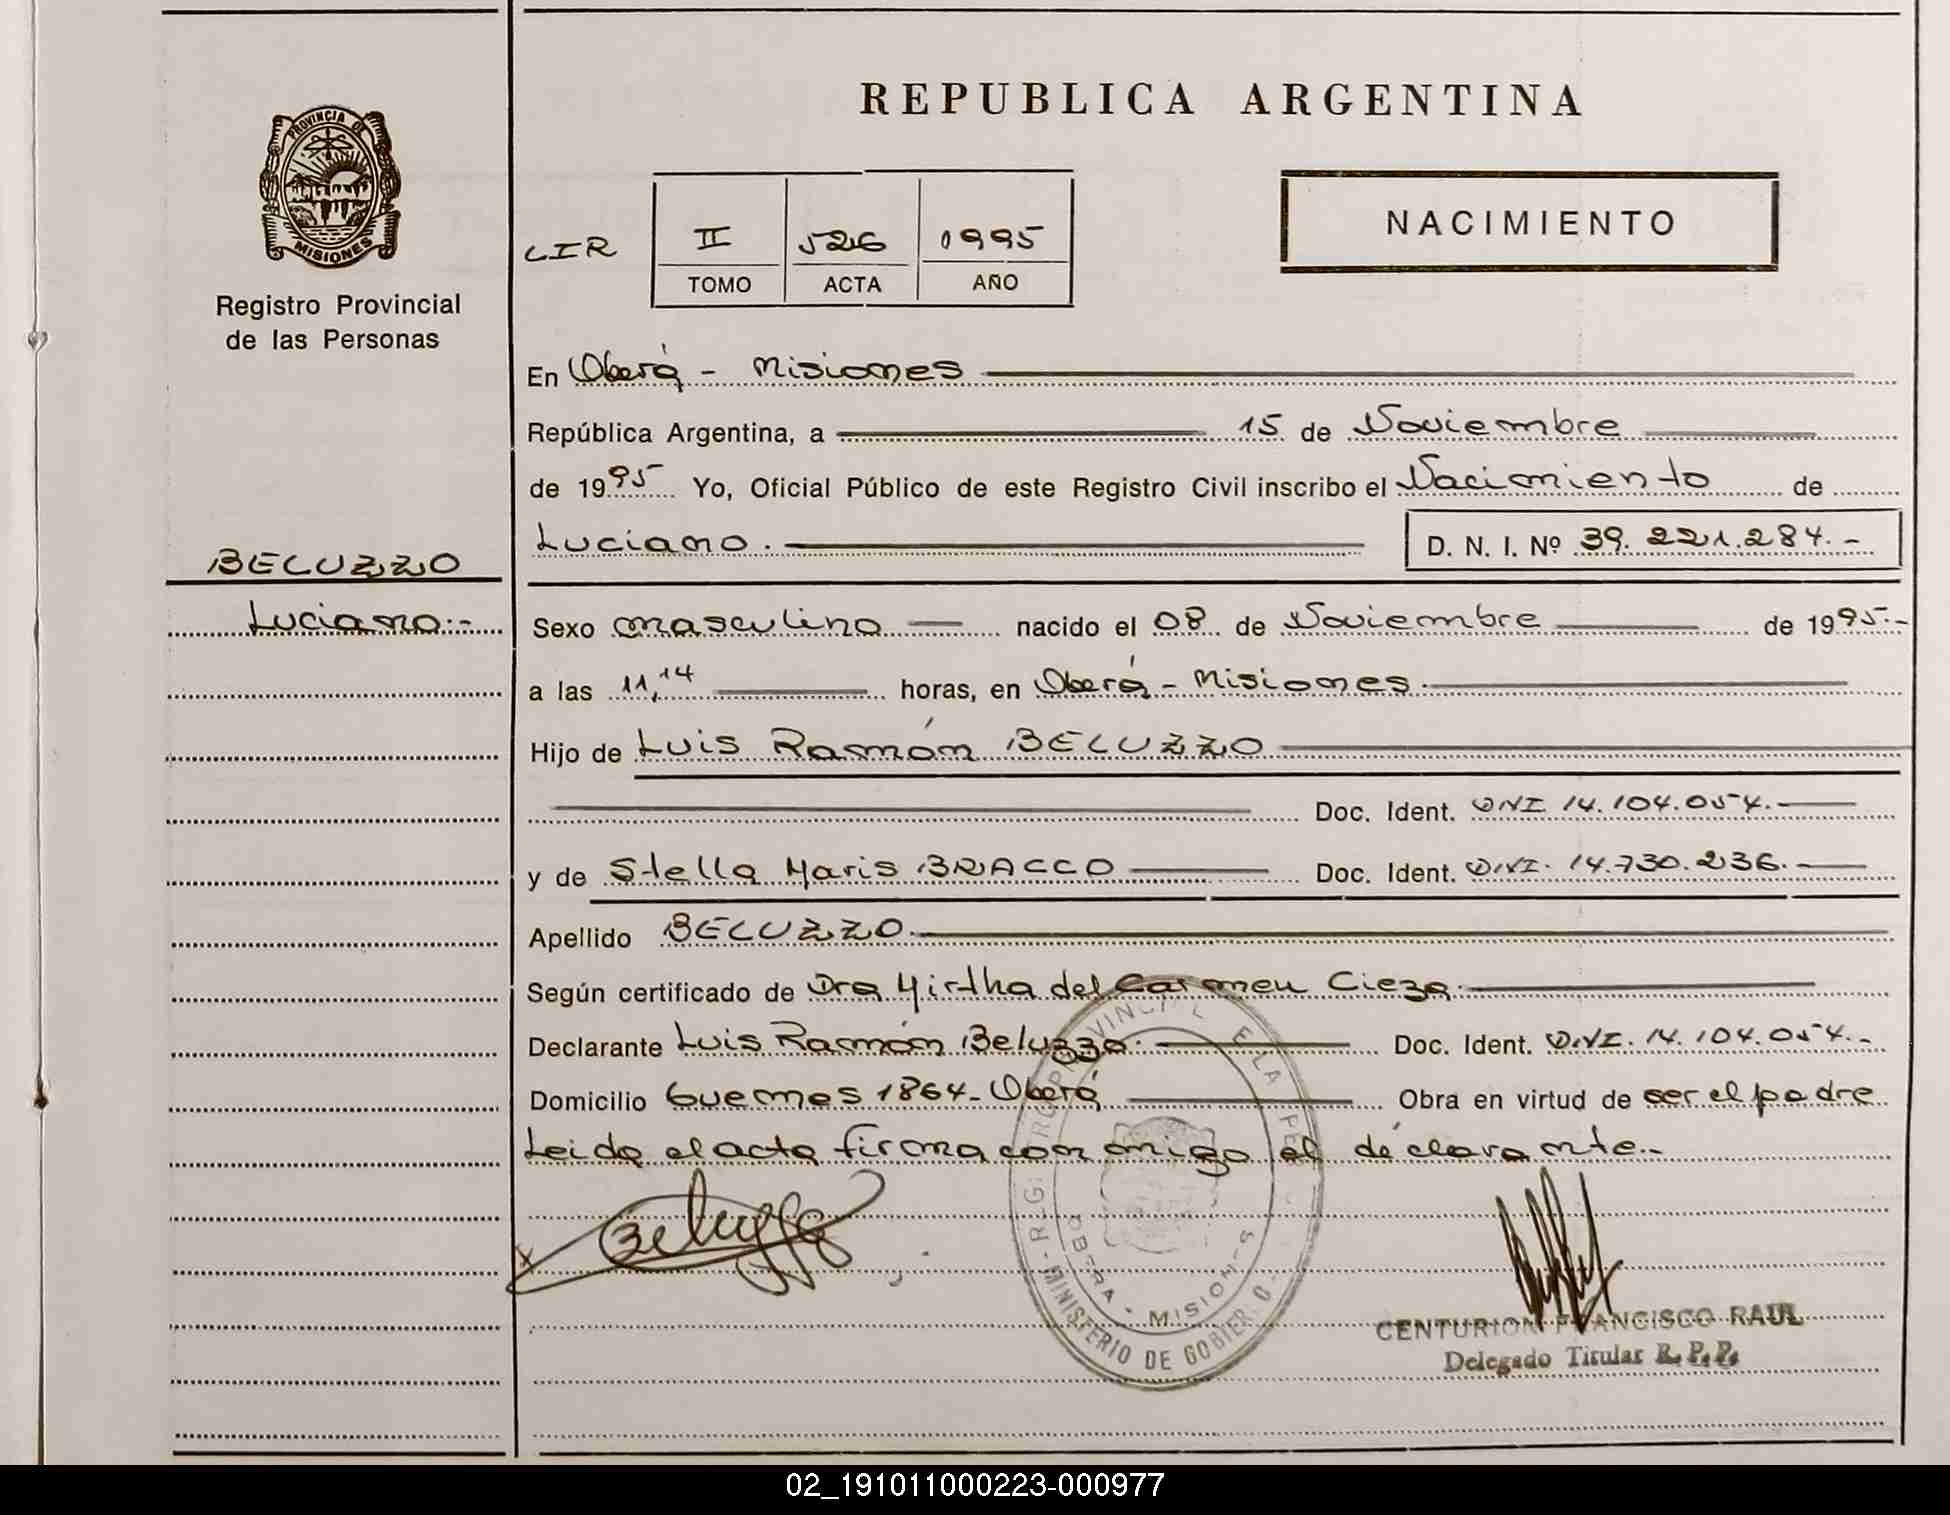 REPUBLICA ARGENTINA
PROVINCIA DE
MISIONES
Registro Provincial
de las Personas
CIR II 526 1995
TOMO ACTA AÑO
NACIMIENTO
En Oberá - Misiones
República Argentina, a 15 de Noviembre
de 1995 Yo, Oficial Público de este Registro Civil inscribo el Nacimiento de
Luciano. D. N. I. Nº 39.221.284.-
BELUZZO
Luciano.-
Sexo masculino nacido el 08 de Noviembre de 1995.-
a las 11,14 horas, en Oberá - Misiones
Hijo de Luis Ramón BELUZZO
Doc. Ident. DNI 14.104.054.
y de Stella Maris BRACCO Doc. Ident. DNI. 14.730.236.
Apellido BELUZZO.
Según certificado de Dra Mirtha del Carmen Cieza.
Declarante Luis Ramón Beluzzo. Doc. Ident. DNI. 14.104.054.-
Domicilio Guemes 1864- Oberá Obra en virtud de ser el padre
Leida el acta firma con migo el declarante.-
Beluzzo
OBERA - MISIONES
MINISTERIO DE GOBIERNO
CENTURION FRANCISCO RAUL
Delegado Titular R. P. P.
02_191011000223-000977